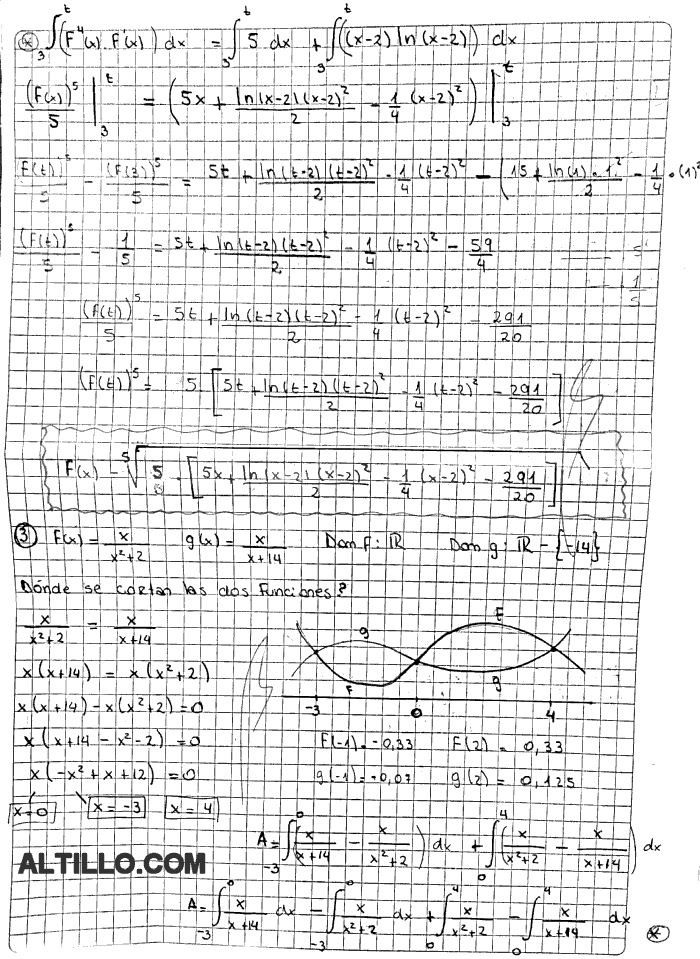 (*) ∫₃ᵗ (F⁴(x) . F'(x)) dx = ∫₃ᵗ 5 dx + ∫₃ᵗ ((x-2) ln (x-2)) dx
(F(x))⁵/5 |₃ᵗ = (5x + ln(x-2)(x-2)²/2 - 1/4 (x-2)²) |₃ᵗ
(F(t))⁵/5 - (F(3))⁵/5 = 5t + ln(t-2)(t-2)²/2 - 1/4 (t-2)² - (15 + ln(1) . 1²/2 - 1/4 . (1)²
(F(t))⁵/5 - 1/5 = 5t + ln(t-2)(t-2)²/2 - 1/4 (t-2)² - 59/4
(F(t))⁵/5 = 5t + ln(t-2)(t-2)²/2 - 1/4 (t-2)² - 291/20
(F(t))⁵ = 5 . [5t + ln(t-2)(t-2)²/2 - 1/4 (t-2)² - 291/20]
F(x) = ⁵√(5 . [5x + ln(x-2)(x-2)²/2 - 1/4 (x-2)² - 291/20])
③ F(x) = x/(x²+2) g(x) = x/(x+14) Dom f: ℝ Dom g: ℝ - {-14}
Dónde se cortan las dos funciones?
x/(x²+2) = x/(x+14)
x(x+14) = x(x²+2)
x(x+14) - x(x²+2) = 0
x(x+14 - x² - 2) = 0
x(-x² + x + 12) = 0
x=0 x=-3 x=4
g F
F g
-3 0 4
F(-1) = -0,33 F(2) = 0,33
g(-1) = -0,07 g(2) = 0,125
A = ∫₋₃⁰ (x/(x+14) - x/(x²+2)) dx + ∫₀⁴ (x/(x²+2) - x/(x+14)) dx
ALTILLO.COM
A = ∫₋₃⁰ x/(x+14) dx - ∫₋₃⁰ x/(x²+2) dx + ∫₀⁴ x/(x²+2) - ∫₀⁴ x/(x+14) dx (*)